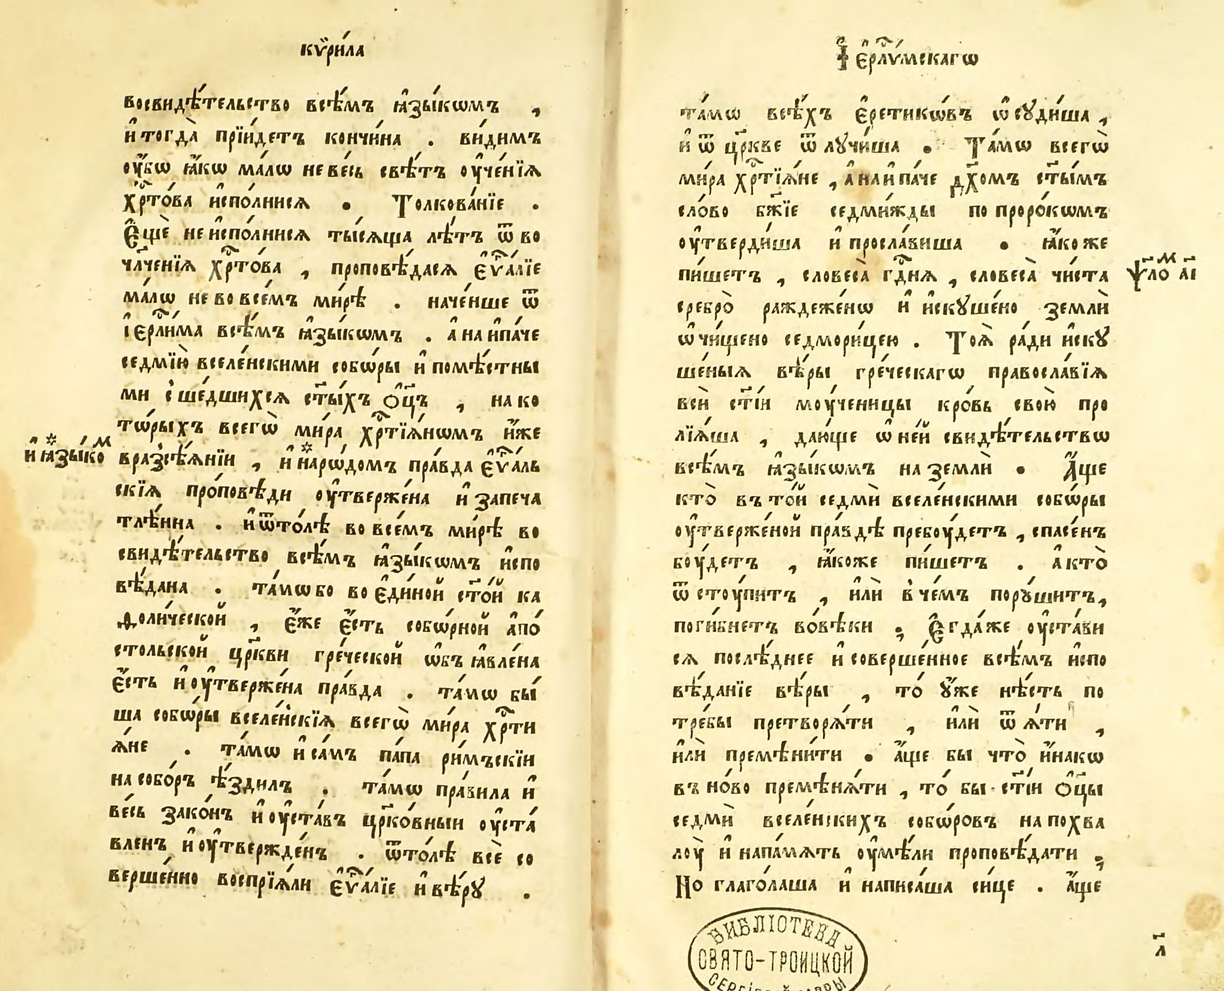 кѷри́ла
восвидѣ́тельство всѣ́мъ ꙗ҆зы́кѡмъ ,
и҆ тогда̀ прїи́детъ кончи́на . ви́димъ
ᲂу҆́бѡ ꙗ҆́кѡ ма́лѡ не ве́сь свѣ́тъ ᲂу҆че́нїѧ
хр҇то́ва и҆спо́лнисѧ . Толкова́нїе .
Є҆щѐ не и҆спо́лнисѧ ты́сѧща лѣ́тъ ѿ во
чл҃че́нїѧ хр҇то́ва , проповѣ́дасѧ є҆ѵⷢ҇а́лїе
ма́лѡ не во все́мъ ми́рѣ . наче́нше ѿ
і҆ерⷭ҇ли́ма всѣ́мъ ꙗ҆зы́кѡмъ . а҆ наи҆па́че
седмїю̀ вселе́нскими собѡ́ры и҆ помѣ́стны
ми сше́дшихсѧ ст҃ы́хъ ѻ҆ц҃ъ , на ко
то́рыхъ всегѡ̀ ми́ра хр҇тїѧ́нѡмъ и҆́же
и҆ ꙗ҆зы́коⷨ
вразсѣ́ѧнїи , и҆ наро́дѡмъ пра́вда є҆ѵⷢ҇а́ль
скїѧ про́повѣди ᲂу҆твержена̀ и҆ запеча
тлѣ́нна . и҆ ѿто́лѣ во все́мъ ми́рѣ во
свидѣ́тельство всѣ́мъ ꙗ҆зы́кѡмъ и҆спо
вѣ́дана . та́мѡ бо во є҆ди́ной ст҃о́й ка
ѳоли́ческой , є҆́же є҆́сть собо́рной а҆по́
стольской цр҃кви гре́ческой ѡ҆б̾ꙗвле́на
є҆́сть и҆ ᲂу҆твержена̀ пра́вда . та́мѡ бы́
ша собѡ́ры вселе́нскїѧ всегѡ̀ ми́ра хр҇ти
ѧ́не . та́мѡ и҆ са́мъ па́па ри́мъскїи
на собо́ръ ѣ҆́здилъ . та́мѡ пра́вила и҆
ве́сь зако́нъ и҆ ᲂу҆ста́въ цр҃ко́вныи ᲂу҆ста́
вленъ и҆ ᲂу҆твержде́нъ . ѿто́лѣ всѐ со
верше́нно воспрїѧ́ли є҆ѵⷢ҇а́лїе и҆ вѣ́рꙋ .
І҆ерⷭ҇ли́мскагѡ
та́мѡ всѣ́хъ є҆ретикѡ́въ ѡ҆сꙋди́ша ,
и҆ ѿ цр҃кве ѿлꙋчи́ша . Та́мѡ всегѡ̀
ми́ра хр҇тїѧ́не , а҆ наи҆па́че дх҃омъ ст҃ы́мъ
сло́во бж҃їе седми́жды по проро́кѡмъ
ᲂу҆тверди́ша и҆ просла́виша . ꙗ҆́коже
пи́шетъ , словеса̀ гдⷭ҇нѧ , словеса̀ чи́ста
ѱало́ⷨ а҃і
сребро̀ раждеже́нѡ и҆ и҆скꙋше́но землѝ
ѡ҆чи́щено седмори́цею . Тоѧ̀ ра́ди и҆скꙋ
ше́ныѧ вѣ́ры гре́ческагѡ правосла́вїѧ
всѝ ст҃і́и мо́ученицы кро́вь свою̀ про
лїѧ́ша , даю́ще ѡ҆ не́й свидѣ́тельствѡ
всѣ́мъ ꙗ҆зы́кѡмъ на землѝ . А҆́ще
кто̀ в то́й седмѝ вселе́нскими собѡ́ры
ᲂу҆твержено́й пра́вдѣ пребꙋ́детъ , спасе́нъ
бꙋ́детъ , ꙗ҆́коже пи́шетъ . а҆ кто̀
ѿстꙋ́питъ , и҆лѝ в че́мъ порꙋ́шитъ,
поги́бнетъ во́вѣки ; Є҆гда́же ᲂу҆ста́ви
сѧ послѣ́днее и҆ соверше́нное всѣ́мъ и҆спо
вѣ́данїе вѣ́ры , то̀ ᲂу҆жѐ нѣ́сть по
тре́бы претворѧ́ти , и҆лѝ ѿѧ́ти ,
и҆лѝ премѣни́ти . а҆́ще бы что̀ и҆́накѡ
въ но́во премѣнѧ́ти , то̀ бы ст҃і́и ѻ҆ц҃ы
седмѝ вселе́нскихъ собѡ́ровъ на похва
лꙋ̀ и҆ на па́мѧть ᲂу҆мѣ́ли проповѣ́дати ;
Но глаго́лаша и҆ написа́ша си́це . а҆́ще
л҃
БИБЛІОТЕКА
СВЯТО-ТРОИЦКОЙ
СЕРГІЕВОЙ ЛАВРЫ